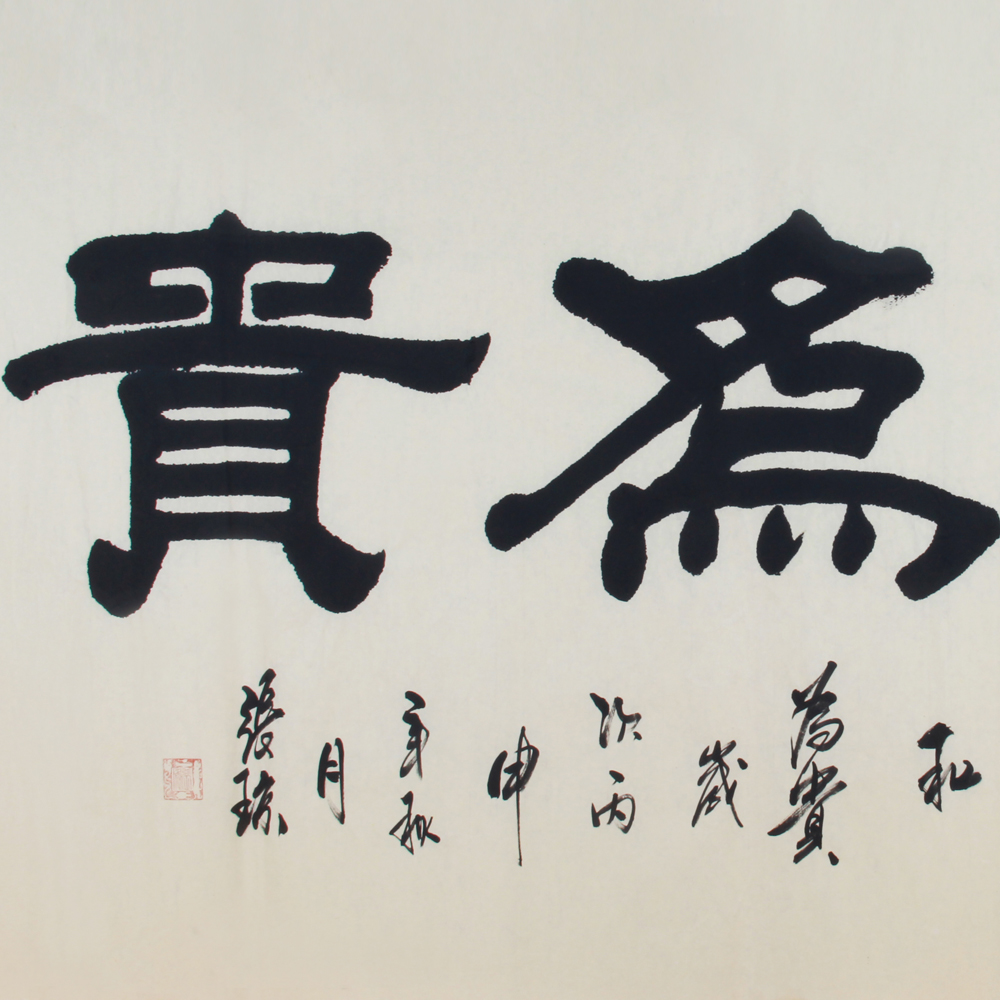 為貴
和
為貴
歲
次丙
申
年秋
月
張琼